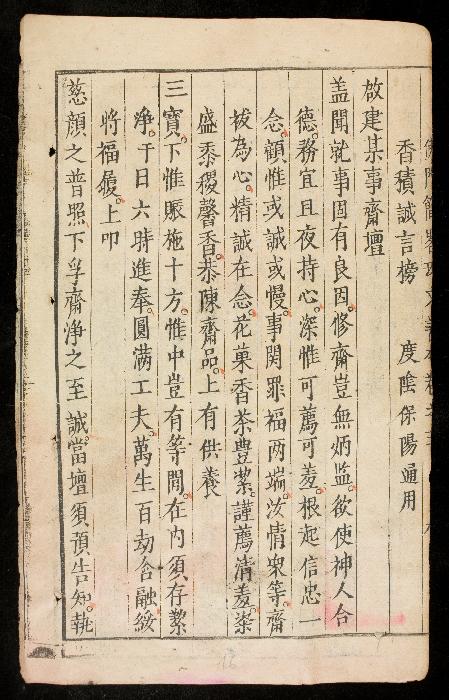 香積誠言榜 度陰保陽通用
啟建某事齋壇
盖聞就事固有良因修齋豈無炳监欲使神人合
德務宜且夜持心深惟可薦可羞根起信忠一
念顧惟或誠或慢事関罪福两端汝情衆等齋
拔為心精誠在念花菓香茶豊潔謹薦清羞粢
盛黍稷馨香恭陳齋品上有供養
三寳下惟賑施十方惟中豈有等閒在内須存潔
净于日六時進奉圓满工夫萬生百劫含融綏
將福履上叩
慈顔之普照下孚齋淨之至誠當壇須預告知執